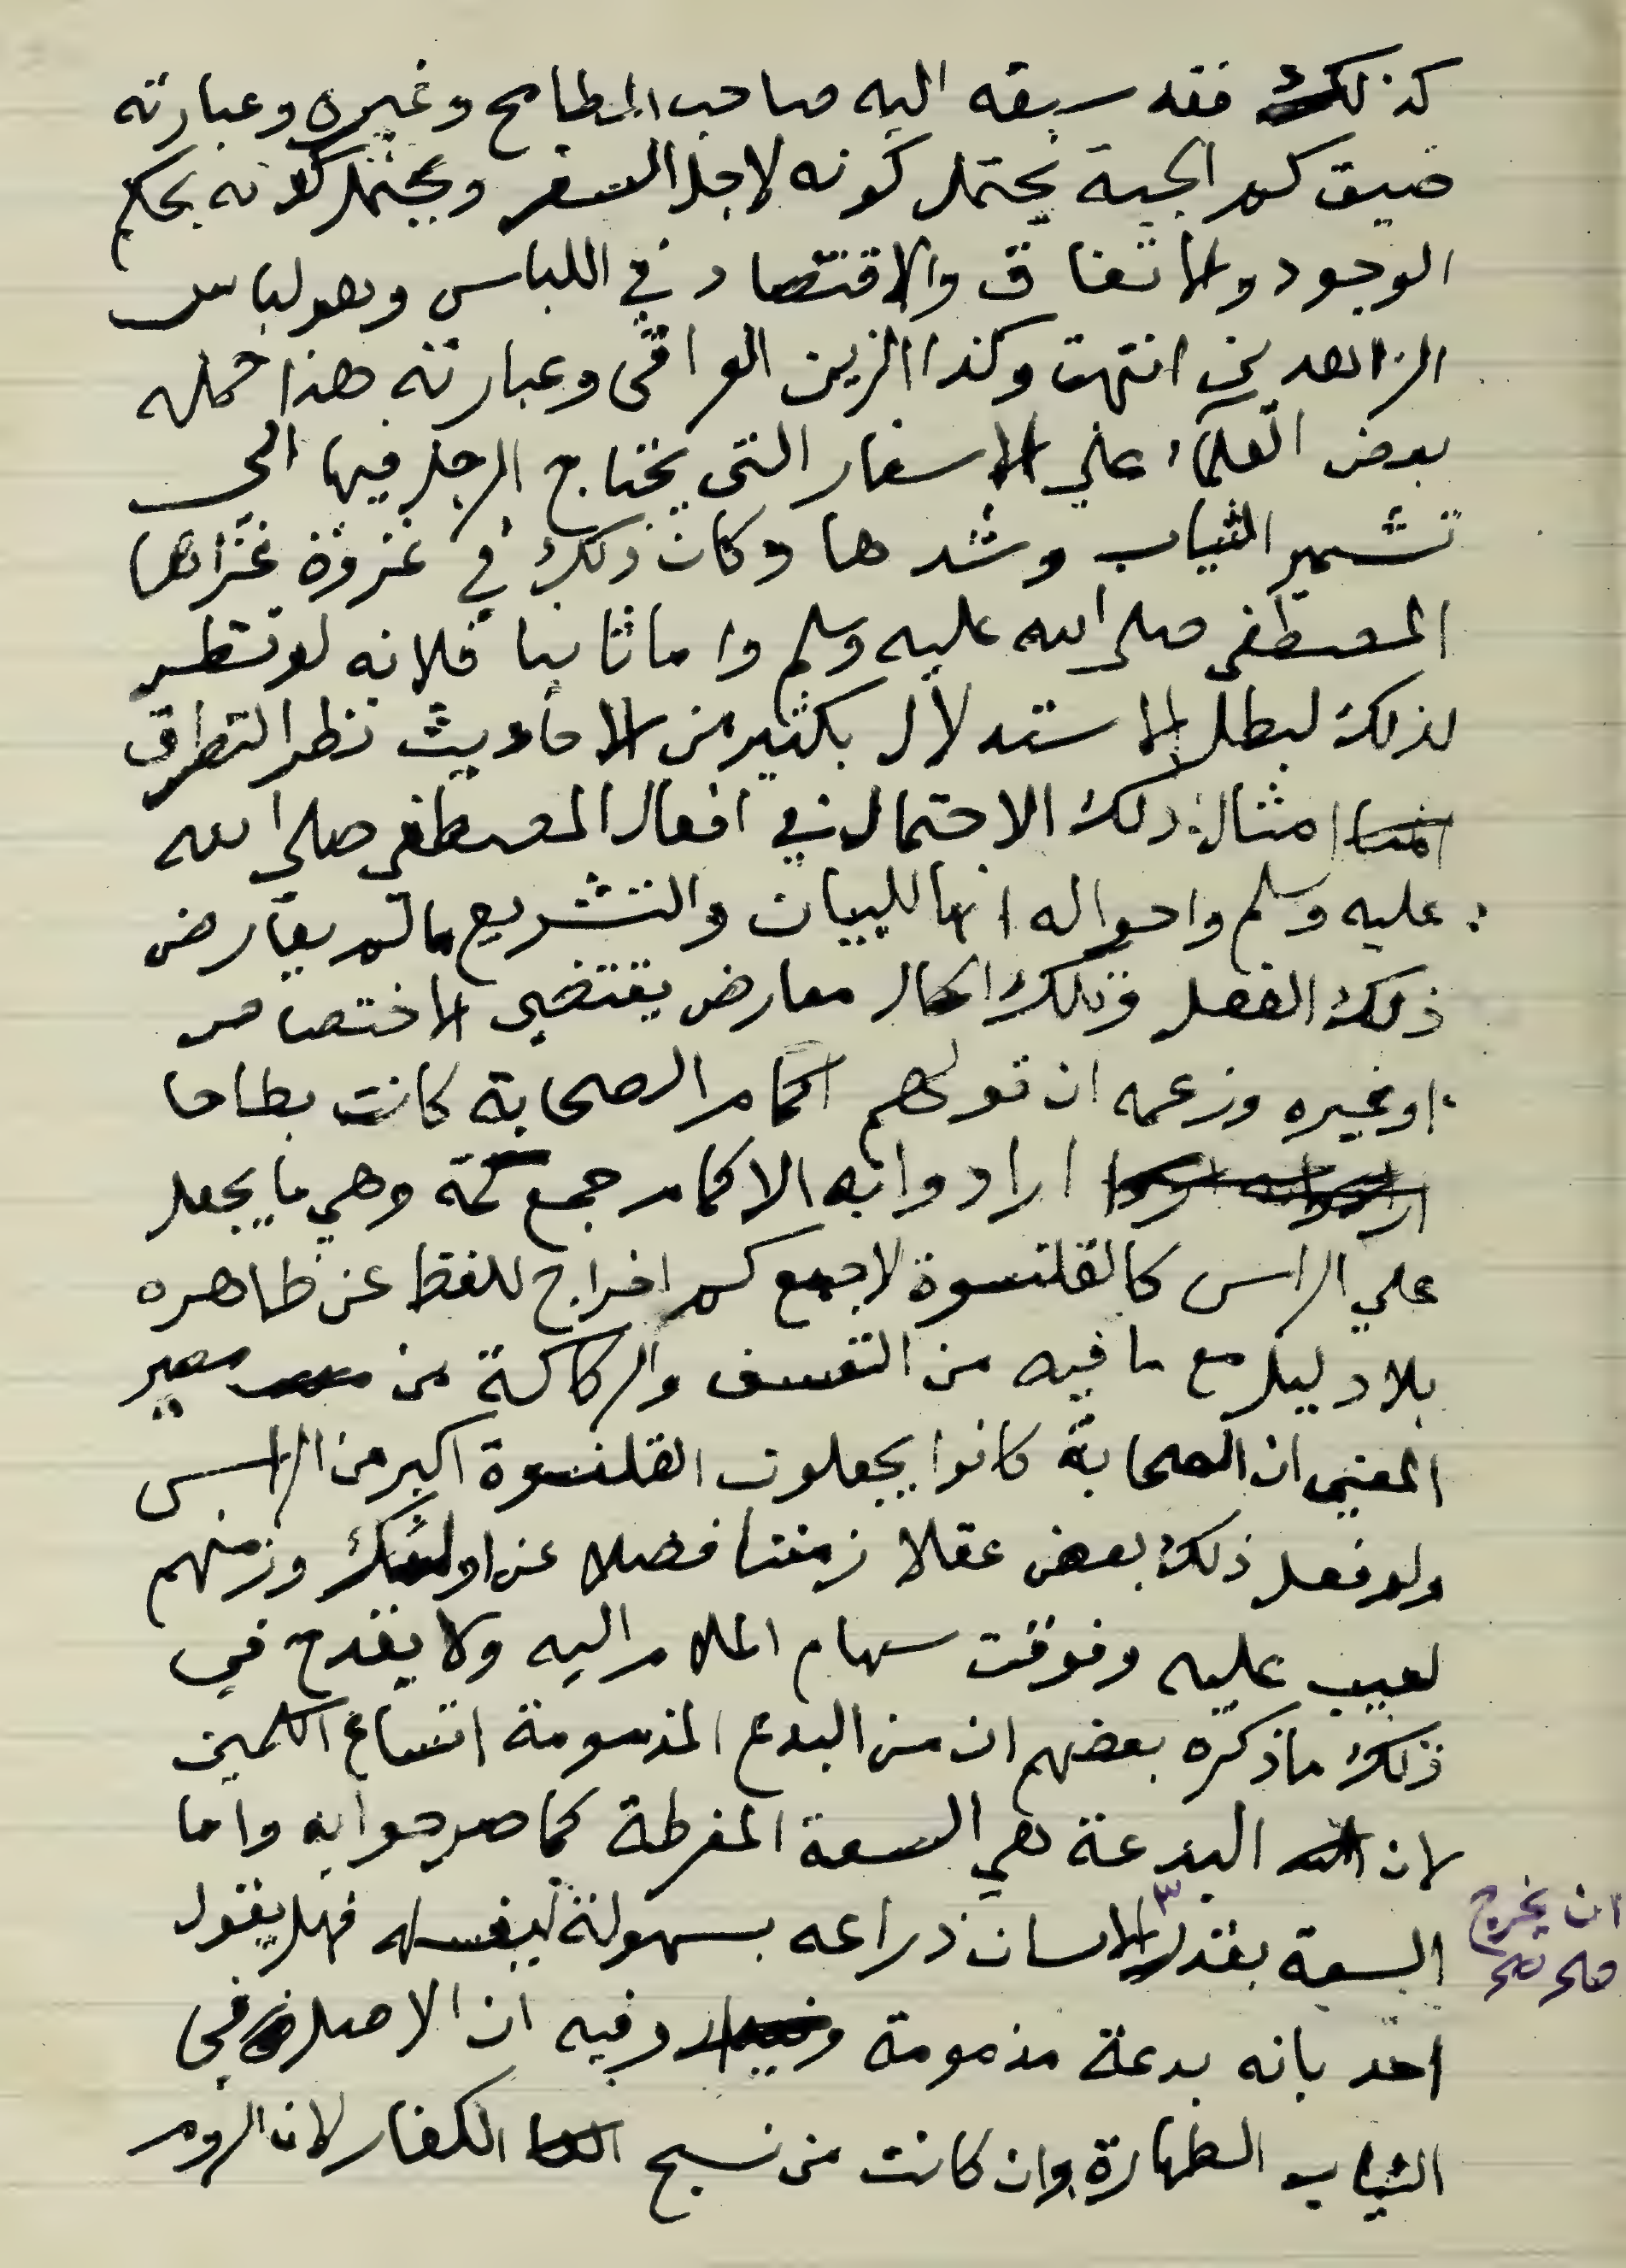 كذلك فقد سبقه اليه صاحب المطامح وغيره وعبارته
ضيق كم الجبة يحتمل كونه لاجل السفر ويحتمل كونه بحكم
الوجود والاتفاق والاقتصاد في اللباس وهو لباس
الزاهدين انتهت وكذا الزين العراقى وعبارته هذا حمله
بعض العلماء علي الاسفار التى يحتاج الرجل فيها الى
تشمير الثياب وشدها وكان ذلك في غزوة غزاها
المصطفى صلى الله عليه وسلم واما ثانيا فلانه لو نظر
لذلك لبطل الاستدلال بكثير من الاحاديث نظرا لتطرق
امثال ذلك الاحتمال في افعال المصطفى صلى الله
عليه وسلم واحواله انها للبيان والتشريع ما لم يعارض
ذلك الفعل وتلك الحال معارض يقتضى الاختصاص
اوغيره وزعمه ان قولهم اكمام الصحابة كانت بطاحا
ارادوا به الاكمام جمع كمة وهي ما يجعل
علي الراس كالقلنسوة لاجمع كم اخراج للفظ عن ظاهره
بلا دليل مع ما فيه من التعسف والركاكة من مصير
المعنى ان الصحابة كانوا يجعلون القلنسوة اكبر من الراس
ولو فعل ذلك بعض عقلا زمننا فضلا عن اولئك وزمنهم
لعيب عليه وفوقت سهام الملام اليه ولا يقدح في
ذلك ماذكره بعضهم ان من البدع المذمومة اتساع الكمين
لان البدعة هي السعة المفرطة كما صرحوا به واما
السعة بقدر الانسان ذراعه بسهولة ليغسله فهل يقول
ان يخرج
صح صح
احد بانه بدعة مذمومة وفيه ان الاصل في
الثياب الطهارة وان كانت من نسج الكفار لان الروم